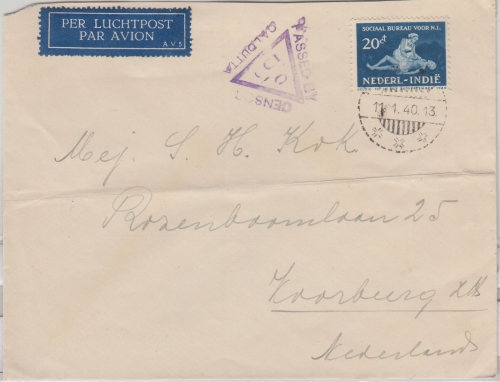 PER LUCHTPOST
PAR AVION
A.V 5
PASSED BY
CENSOR
CALCUTTA
SOCIAAL BUREAU VOOR N.I.
20ct
NEDERL-INDIË
1.40.13
Mej. S. H. Kok
Rozenboomlaan 25
Voorburg Z.H.
Nederland